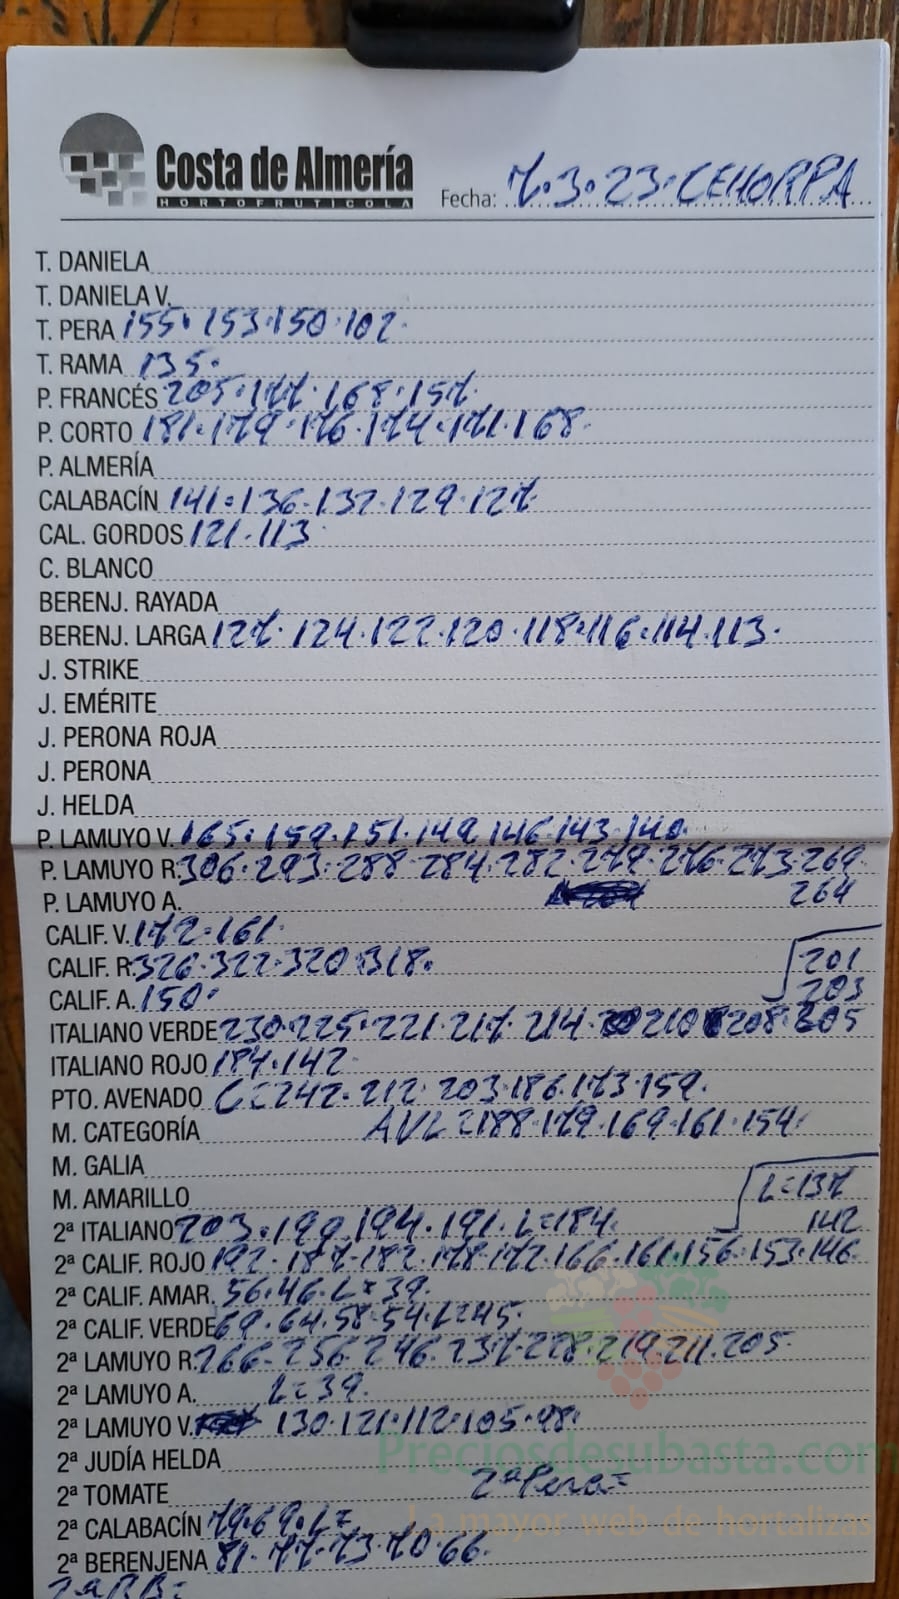 Costa de Almería
HORTOFRUTICOLA
Fecha: 7.3.23.CEHORPA
T. DANIELA
T. DANIELA V.
T. PERA 155.153.150.102.
T. RAMA 135.
P. FRANCÉS 205.177.168.157.
P. CORTO 181.179.176.174.171.168.
P. ALMERÍA
CALABACÍN 141.136.132.129.127.
CAL. GORDOS 121.113
C. BLANCO
BERENJ. RAYADA
BERENJ. LARGA 127.124.122.120.118.116.114.113.
J. STRIKE
J. EMÉRITE
J. PERONA ROJA
J. PERONA
J. HELDA
P. LAMUYO V. 165.159.151.149.146.143.140.
P. LAMUYO R. 306.293.288.284.282.279.276.273.269
P. LAMUYO A. 264
CALIF. V. 172.161.
CALIF. R. 326.322.320.318. 201
CALIF. A. 150. 203
ITALIANO VERDE 230.225.221.217.214.210.208.205
ITALIANO ROJO 184.142
PTO. AVENADO C=242.212.203.186.173.159.
M. CATEGORÍA AVL=188.179.169.161.154.
M. GALIA
M. AMARILLO L=137
2ª ITALIANO 203.199.194.191.L=184. 142
2ª CALIF. ROJO 192.187.182.178.172.166.161.156.153.146.
2ª CALIF. AMAR. 56.46.L=39.
2ª CALIF. VERDE 69.64.58.54.L=45.
2ª LAMUYO R. 266.256.246.237.228.219.211.205.
2ª LAMUYO A. L=39.
2ª LAMUYO V. 130.121.112.105.98.
2ª JUDÍA HELDA
Preciosdesubasta.com
2ª TOMATE 2ª Pera=
2ª CALABACÍN 79.69.L=
La mayor web de hortalizas
2ª BERENJENA 81.77.73.70.66.